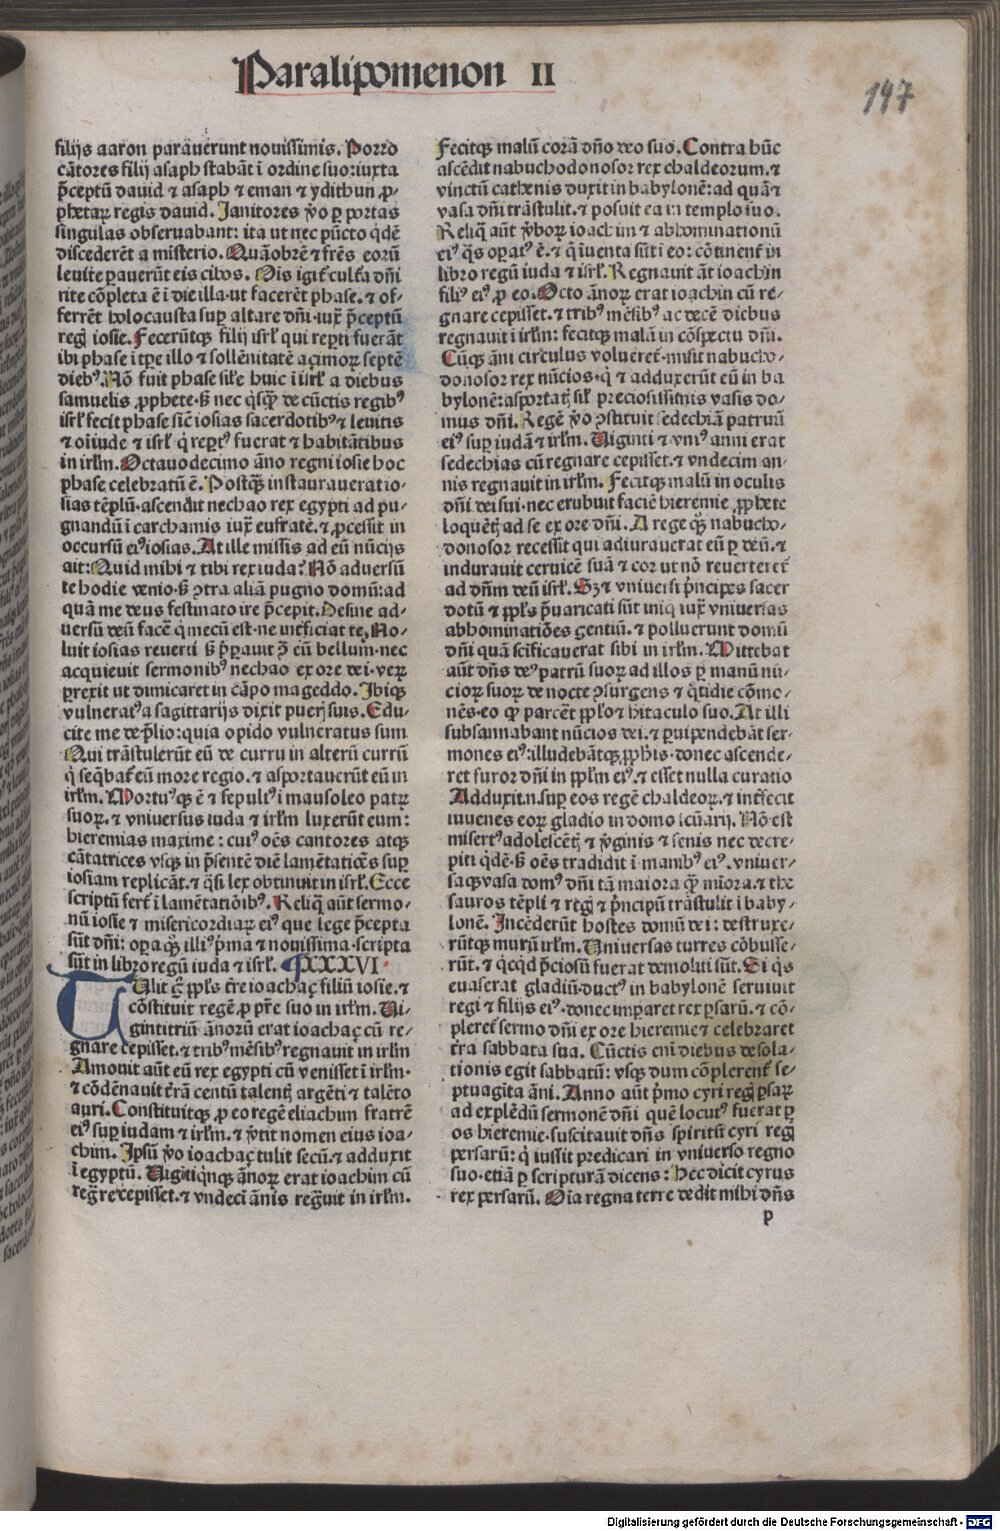 Paralipomenon II
147
filijs aaron parauerunt nouissimis. Porro
cãtores filij asaph stabãt ĩ ordine suo: iuxta
p̃ceptũ dauid ⁊ asaph ⁊ eman ⁊ ydithun ꝓ-
phetaꝝ regis dauid. Janitores ꝟo ꝑ portas
singulas obseruabant: ita ut nec pũcto qͥdẽ
discederẽt a mĩsterio. Quãobrẽ ⁊ fr̃es eorũ
leuite ꝑauerũt eis cibos. Ois igit᷑ cult᷑a dñi
rite cõpleta ẽ ĩ die illa· ut facerẽt phase. ⁊ of-
ferrẽt holocausta suꝑ altare dñi· iux̃ p̃ceptũ
regꝭ iosie. Fecerũtqꝫ filij isrł qui reꝑti fuerãt
ibi phase ĩ tꝑe illo ⁊ sollẽnitatẽ açimoꝝ septẽ
diebꝰ. Nõ fuit phase sil̃e huic ĩ isrł a diebus
samuelis ꝓphete· sꝫ nec qͥsꝙ̃ de cũctis regibꝰ
isrł fecit phase sic̃ iosias sacerdotibꝰ ⁊ leuitis
⁊ oĩ iude ⁊ isrł qͥ reꝑtꝰ fuerat ⁊ habitãtibus
in irłm. Octauodecimo ãno regni iosie hoc
phase celebratũ ẽ. Postꝙ̃ instaurauerat io-
sias tẽplũ· ascendit nechao rex egypti ad pu-
gnandũ ĩ carchamis iux̃ eufratẽ. ⁊ ꝓcessit in
occursũ eiꝰ iosias. At ille missis ad eũ nũcijs
ait: Quid mihi ⁊ tibi rex iuda? Nõ aduersũ
te hodie venio· sꝫ ꝯtra aliã pugno domũ: ad
quã me deus festinato ire p̃cepit. Desine ad-
uersũ deũ facẽ qͥ mecũ est· ne int᷑ficiat te. No-
luit iosias reuerti sꝫ p̃ꝑauit ꝯ̃ eũ bellum· nec
acquieuit sermonibꝰ nechao ex ore dei· veꝝ
ꝑrexit ut dimicaret in cãpo mageddo. Ibiqꝫ
vulneratꝰ a sagittarijs dixit pueris suis. Edu-
cite me de p̃lio: quia opido vulneratus sum
Qui trãstulerũt eũ de curru in alterũ currũ
qͥ seq̃bat᷑ eũ more regio. ⁊ asportauerũt eũ in
irłm. Mortuꝰqꝫ ẽ ⁊ sepultꝰ ĩ mausoleo patꝝ
suoꝝ. ⁊ vniuersus iuda ⁊ irłm luxerũt eum:
hieremias maxime: cuiꝰ oẽs cantores atqꝫ
cãtatrices vsqꝫ in p̃sentẽ diẽ lamẽtatiões suꝑ
iosiam replicãt. ⁊ q̃si lex obtinuit in isrł. Ecce
scriptũ fert᷑ ĩ lamẽtatiõibꝰ. Reliq̃ aũt sermo-
nũ iosie ⁊ misericordiaꝝ eiꝰ que lege p̃cepta
sũt dñi: oꝑa qꝫ illiꝰ p̃ma ⁊ nouissima· scripta
sũt in libro regũ iuda ⁊ isrł. ¶XXXVI·
Tulit g̃ ppl̃s t̃re ioachaç filiũ iosie. ⁊
cõstituit regẽ ꝓ pr̃e suo in irłm. Vi-
gintitriũ ãnorũ erat ioachaç cũ re-
gnare cepisset. ⁊ tribꝰ mẽsibꝰ regnauit in irłm
Amouit aũt eũ rex egypti cũ venisset ĩ irłm·
⁊ cõdẽnauit t̃rã centũ talentꝭ argẽti ⁊ talẽto
auri. Constituitqꝫ ꝓ eo regẽ eliachim fratrẽ
eiꝰ suꝑ iudam ⁊ irłm. ⁊ ꝟtit nomen eius ioa-
chim. Ipsũ ꝟo ioachaç tulit secũ ⁊ adduxit
ĩ egyptũ. Vigĩtiqͥnqꝫ ãnoꝝ erat ioachim cũ
regn̾re cepisset. ⁊ vndeci ãnis reg̃uit in irłm.
Fecitqꝫ malũ corã dño deo suo. Contra hũc
ascẽdit nabuchodonosor rex chaldeorum. ⁊
vinctũ cathenis duxit in babylonẽ: ad quã ⁊
vasa dñi trãstulit. ⁊ posuit ea in templo suo.
Reliq̃ aũt ꝟboꝝ ioachim ⁊ abhominationũ
eiꝰ q̃s oꝑatꝰ ẽ. ⁊ q̃ iuenta sũt ĩ eo: cõtinent᷑ in
libro regũ iuda ⁊ isrł. Regnauit ãt ioachin
filiꝰ eiꝰ ꝓ eo. Octo ãnoꝝ erat ioachin cũ re-
gnare cepisset. ⁊ tribꝰ mẽsibꝰ ac decẽ diebus
regnauit ĩ irłm: fecitqꝫ malũ in cõspectu dñi.
Cũqꝫ ãni circulus volueret᷑· misit nabucho-
donosor rex nũcios· qͥ ⁊ adduxerũt eũ in ba
bylonẽ: asportatꝭ sił preciosissimis vasis do-
mus dñi. Regẽ ꝟo ꝯstituit sedechiã patruũ
eiꝰ suꝑ iudã ⁊ irłm. Viginti ⁊ vniꝰ anni erat
sedechias cũ regnare cepisset. ⁊ vndecim an-
nis regnauit in irłm. Fecitqꝫ malũ in oculis
dñi dei sui· nec erubuit faciẽ hieremie ꝓphete
loquẽtꝭ ad se ex ore dñi. A rege qꝫ nabucho-
donosor recessit qui adiurauerat eũ ꝑ deũ. ⁊
indurauit ceruicẽ suã ⁊ cor ut nõ reuerteret᷑
ad dñm deũ isrł. Sꝫ ⁊ vniuersi p̃ncipes sacer
dotũ ⁊ ppl̃s p̃uaricati sũt iniq̃ iux̃ vniuersas
abhominatiões gentiũ. ⁊ polluerunt domũ
dñi quã scĩficauerat sibi in irłm. Mittebat
aũt dñs deꝰ patrũ suoꝝ ad illos ꝑ manũ nũ-
cioꝝ suoꝝ de nocte ꝯsurgens ⁊ q̃tidie cõmo-
nẽs· eo ꝙ parcẽt ppl̃o ⁊ hitaculo suo. At illi
subsannabant nũcios dei. ⁊ ꝑuipendebãt ser-
mones eiꝰ: illudebãtqꝫ ꝓphis· donec ascende-
ret furor dñi in ppl̃m eiꝰ. ⁊ esset nulla curatio
Adduxit. n. suꝑ eos regẽ chaldeoꝝ. ⁊ int᷑fecit
iuuenes eoꝝ gladio in domo scũarij. Nõ est
misertꝰ adolescẽtꝭ ⁊ ꝟginis ⁊ senis nec decre-
piti qͥdẽ· sꝫ oẽs tradidit ĩ manibꝰ eiꝰ. vniuer-
saqꝫ vasa domꝰ dñi tã maiora ꝙ̃ mĩora. ⁊ the
sauros tẽpli ⁊ regꝭ ⁊ p̃ncipũ trãstulit ĩ baby-
lonẽ. Incẽderũt hostes domũ dei: destruxe-
rũtqꝫ murũ irłm. Vniuersas turres cõbusse-
rũt. ⁊ qͥcqͥd p̃ciosũ fuerat demoliti sũt. Si qͥs
euaserat gladiũ· ductꝰ in babylonẽ seruiuit
regi ⁊ filijs eiꝰ· donec imꝑaret rex ꝑsarũ. ⁊ cõ-
pleret᷑ sermo dñi ex ore hieremie ⁊ celebraret
t̃ra sabbata sua. Cũctis eni diebus desola-
tionis egit sabbatũ: vsqꝫ dum cõplerent᷑ se-
ptuagĩta ãni. Anno aũt p̃mo cyri regꝭ ꝑsaꝝ
ad explẽdũ sermonẽ dñi quẽ locutꝰ fuerat ꝑ
os hieremie· suscitauit dñs spiritũ cyri regꝭ
persarũ: qͥ iussit predicari in vniuerso regno
suo· etiã ꝑ scripturã dicens: Hec dicit cyrus
rex persarũ. Oĩa regna terre dedit mihi dñs
p
Digitalisierung gefördert durch die Deutsche Forschungsgemeinschaft - DFG